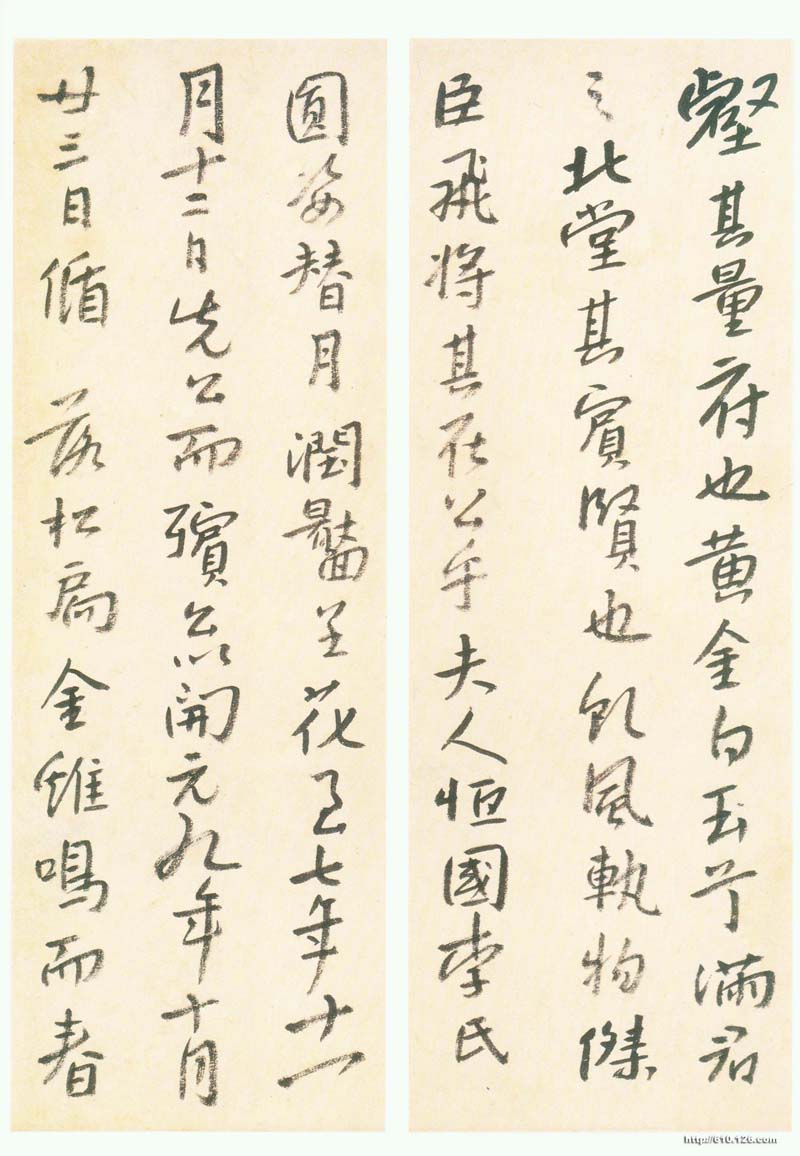 壑其量府也黄金白玉兮滿君
之北堂其賓賢也飢風執物傑
臣飛將其在公乎夫人恒國李氏
圓姿替月潤臉呈花以七年十一
月十二日先公而殯以開元九年十月
廿三日循 落松扃金雉鳴而春
http://610.126.com